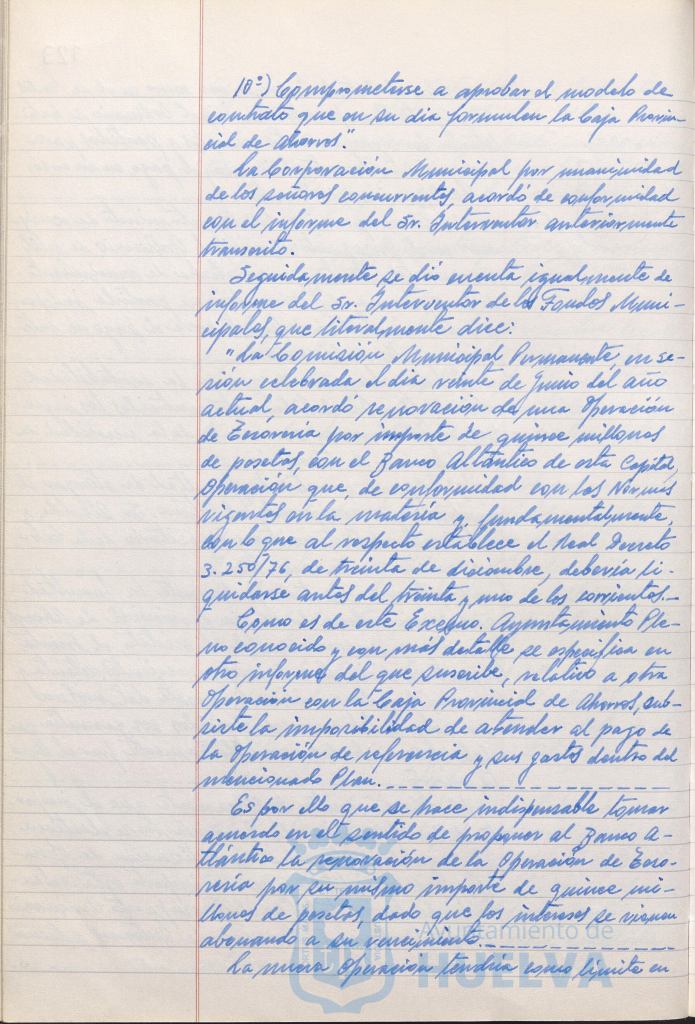 10º) Comprometerse a aprobar el modelo de
contrato que en su dia formulen la Caja Provin
cial de Ahorros."
La Corporación Municipal por unanimidad
de los señores concurrentes, acordó de conformidad
con el informe del Sr. Interventor anteriormente
transcrito.
Seguidamente se dió cuenta igualmente de
informe del Sr. Interventor de los Fondos Muni-
cipales, que literalmente dice:
"La Comisión Municipal Permanente, en se-
sión celebrada el dia veinte de Junio del año
actual, acordó renovación de una Operación
de Tesoreria por importe de quince millones
de pesetas, con el Banco Atlántico de esta Capital,
Operación que, de conformidad con las Normas
vigentes en la materia y, fundamentalmente,
con lo que al respecto establece el Real Decreto
3.250/76, de treinta de diciembre, deberia li-
quidarse antes del treinta y uno de los corrientes.-
Como es de este Excmo. Ayuntamiento Ple-
no conocido y con más detalle se especifica en
otro informe del que suscribe, relativo a otra
Operación con la Caja Provincial de Ahorros, sub-
siste la imposibilidad de atender al pago de
la Operación de referencia y sus gastos dentro del
mencionado Plan.
Es por ello que se hace indispensable tomar
acuerdo en el sentido de proponer al Banco A-
tlántico la renovación de la Operación de Teso-
rería por su mismo importe de quince mi-
llones de pesetas, dado que los intereses se vienen
abonando a su vencimiento.
La nueva Operación tendria como límite en
Ayuntamiento de
HUELVA